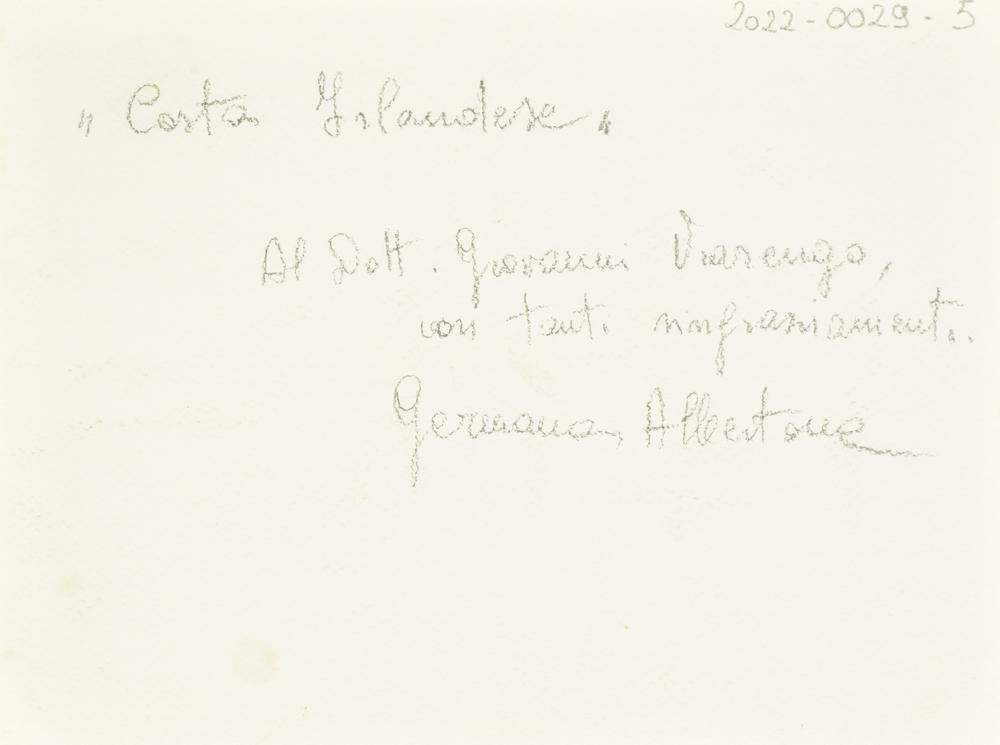 2022-0029-5
"Costa Irlandese"
Al Dott. Giovanni Viarengo,
con tanti ringraziamenti.
Germana Albertone